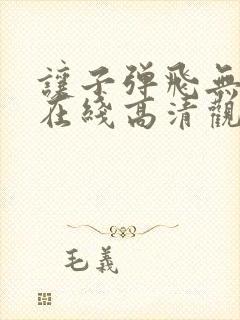 讓子弹飛無
在綫高清觀
毛義